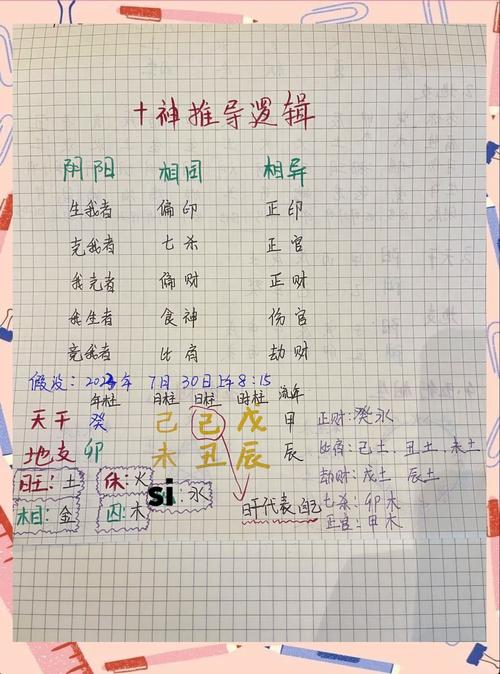 十神推导逻辑
阴阳 相同 相异
生我者 偏印 正印
克我者 七杀 正官
我克者 偏财 正财
我生者 食神 伤官
竞我者 比肩 劫财
假设: 2023年 7月 30日 上午8:15
年柱 月柱 日柱 时柱 流年
天干 癸 己 己 戊 甲 正财: 癸水
地支 卯 未 丑 辰 辰 比肩: 己土、丑土、未土
劫财: 戊土 辰土
旺: 土 休: 火 七杀: 卯木
si: 水 日干代表自己
相: 金 囚: 木 正官: 甲木